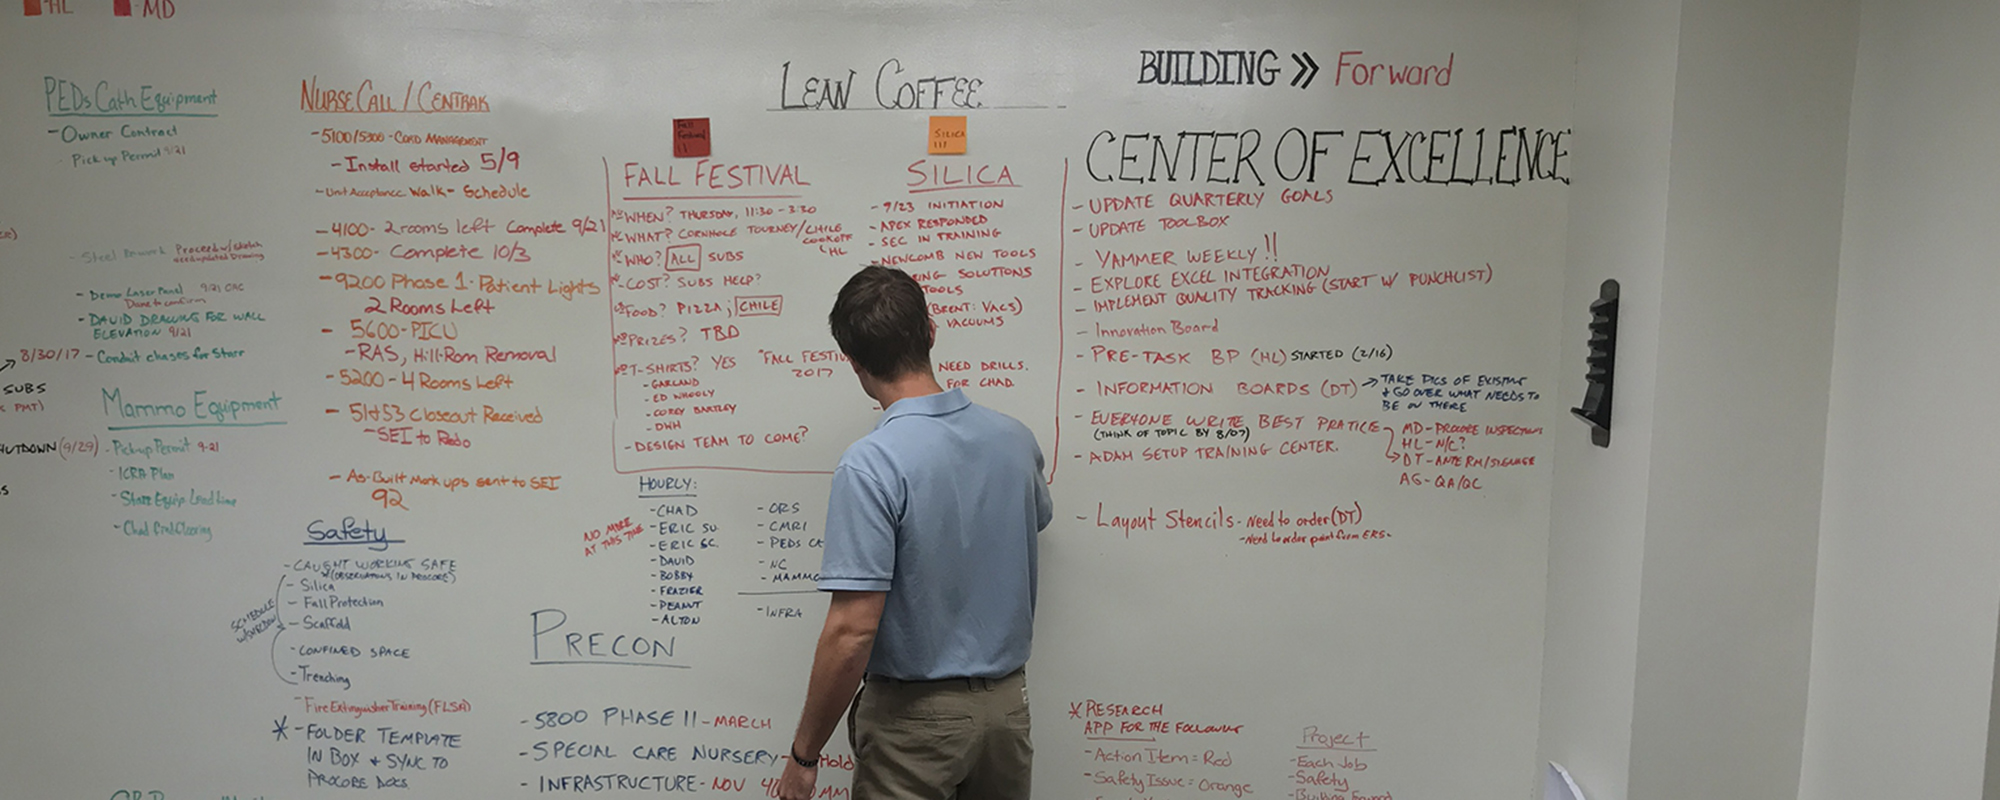 HL
MD
PEDs Cath Equipment
- Owner Contract
- Pick up Permit 9/21
- Steel Rework Proceed w/sketch
need updated Drawing
- Demo Laser Panel 9/21 CRC
Dane to confirm
- DAVID DRAWING FOR WALL
ELEVATION 9/21
8/30/17 - Conduit chases for Starr
SUBS
Mammo Equipment
(9/29)
- Pick-up Permit 9-21
- ICRA Plan
NURSE CALL / CENTRAK
- 5100/5300 - CORD MANAGEMENT
- Install started 5/9
- Unit Acceptance Walk - Schedule
- 4100 - 2 rooms left Complete 9/21
- 4300 - Complete 10/3
- 9200 Phase 1 - Patient Lights
2 Rooms Left
- 5600 - PICU
- RAS, Hill-Rom Removal
- 5200 - 4 Rooms Left
- 51+53 Closeout Received
- SEI to Redo
- As-Built Mark ups sent to SEI
92
Safety
- CAUGHT WORKING SAFE
(OBSERVATIONS IN PROCORE)
- Silica
- Fall Protection
- Scaffold
- CONFINED SPACE
- Trenching
SCHEDULE
- Fire Extinguisher Training (FLSA)
* - FOLDER TEMPLATE
IN BOX + SYNC TO
PROCORE DOCS.
LEAN COFFEE
Fall
Festival
II
SILICA
III
FALL FESTIVAL
WHEN? THURSDAY, 11:30 - 3:30
WHAT? CORNHOLE TOURNEY/CHILE
COOKOFF
HL
WHO? ALL SUBS
COST? SUBS HELP?
FOOD? PIZZA; CHILE
PRIZES? TBD
T-SHIRTS? YES "FALL FESTIV
2017
- GARLAND
- ED WHOOLY
- COREY BARTLEY
- DWH
- DESIGN TEAM TO COME?
SILICA
- 9/23 INITIATION
- APEX RESPONDED
- SEC IN TRAINING
- NEWCOMB NEW TOOLS
ING SOLUTIONS
TOOLS
(BRENT: VACS)
VACUUMS
NEED DRILLS.
FOR CHAD.
HOURLY:
NO MORE
AT THIS TIME
- CHAD
- ERIC SU.
- ERIC SC.
- DAVID
- BOBBY
- FRAZIER
- PEANUT
- ALTON
- ORS
- CMRI
- PEDS CA
- NC
- MAMMO
- INFRA
PRECON
- 5800 PHASE II - MARCH
- SPECIAL CARE NURSERY - Hold
- INFRASTRUCTURE - NOV 40 MM
BUILDING >> Forward
CENTER OF EXCELLENCE
- UPDATE QUARTERLY GOALS
- UPDATE TOOLBOX
- YAMMER WEEKLY!!
- EXPLORE EXCEL INTEGRATION
- IMPLEMENT QUALITY TRACKING (START W/ PUNCHLIST)
- Innovation Board
- PRE-TASK BP (HL) STARTED (2/16)
- INFORMATION BOARDS (DT) → TAKE PICS OF EXISTING
+ GO OVER WHAT NEEDS TO
BE ON THERE
- EVERYONE WRITE BEST PRATICE
(THINK OF TOPIC BY 8/07)
MD - PROCORE INSPECTIONS
HL - N/C?
DT - ANTE RM/SIGNAGE
AG - QA/QC
- ADAM SETUP TRAINING CENTER.
- Layout Stencils - Need to order (DT)
- Need to order paint from ERS -
* RESEARCH
APP FOR THE FOLLOWING
- Action Item = Red
- Safety Issue = Orange
Project
- Each Job
- Safety
- Building Forward